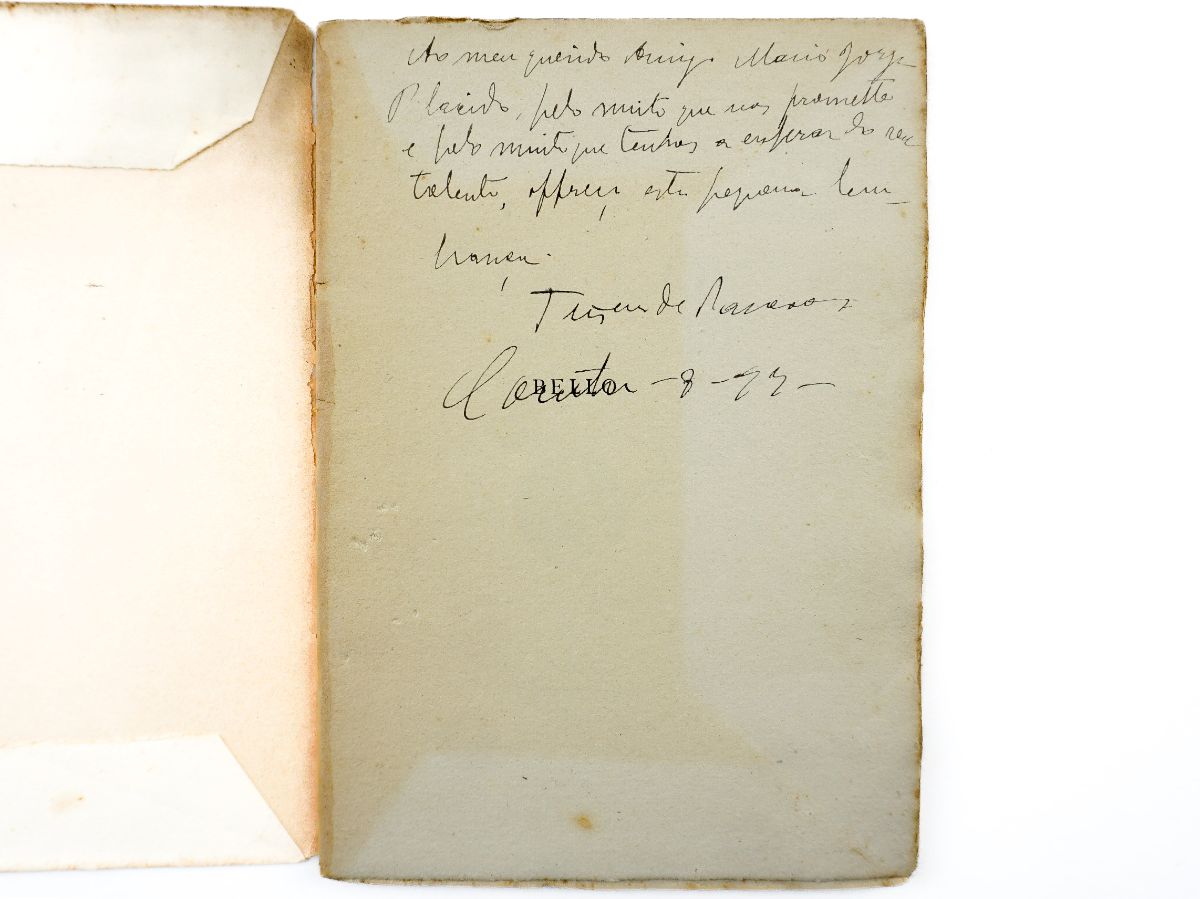 Ao meu querido Amigo Mario Jorge
Placido, pelo muito que nos promette
e pelo muito que temos a esperar do seu
talento, offreço esta pequena lem-
brança.
Teixeira de Pascoaes
BELLO
-8-97-